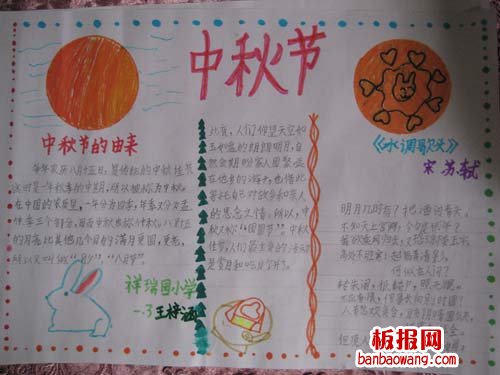 中秋节
中秋节的由来
每年农历八月十五日，是传统的中秋佳节
这时是一年秋季的中期，所以被称为中秋。
在中国的农历里，一年分为四季，每季又分为孟
仲季三个部分，因而中秋也称仲秋。八月十五
的月亮比其他几个月的满月更圆，更亮，
所以又叫做"月夕"，"八月节"。
祥瑞园小学
一.3 王梓涵
此夜，人们仰望天空如
玉如盘的朗朗明月，自
然会期盼家人团聚。远
在他乡的游子，也借此
寄托自己对故乡和亲人
的思念之情。所以，中
秋又称"团圆节"。中秋
佳节，人们最主要的活动
是赏月和吃月饼了。
《水调歌头》
宋 苏轼
明月几时有？把酒问青天。
不知天上宫阙，今夕是何年？
我欲乘风归去，又恐琼楼玉宇
高处不胜寒！起舞弄清影，
何似在人间？
转朱阁，低绮户，照无眠。
不应有恨，何事长向别时圆？
人有悲欢离合，月有阴晴圆缺
板报网
banbaowang.com